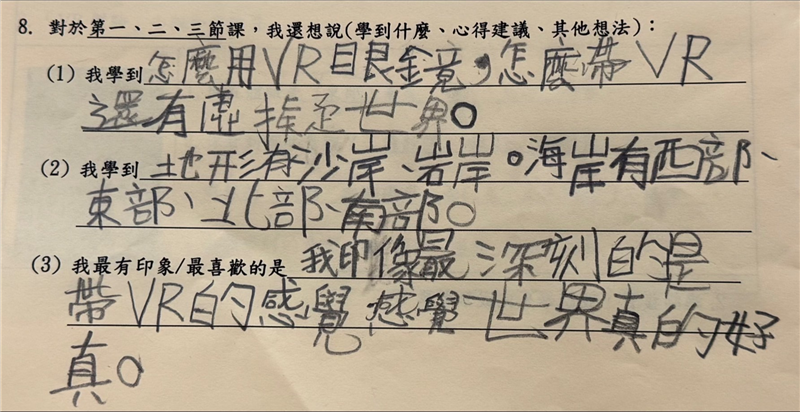 8. 對於第一、二、三節課，我還想說(學到什麼、心得建議、其他想法)：
(1) 我學到怎麼用VR眼鏡，怎麼帶VR
還有虛擬世界。
(2) 我學到地形有沙岸、岩岸。海岸有西部、
東部、北部、南部。
(3) 我最有印象/最喜歡的是我印像最深刻的是
帶VR的感覺感覺世界真的好
真。